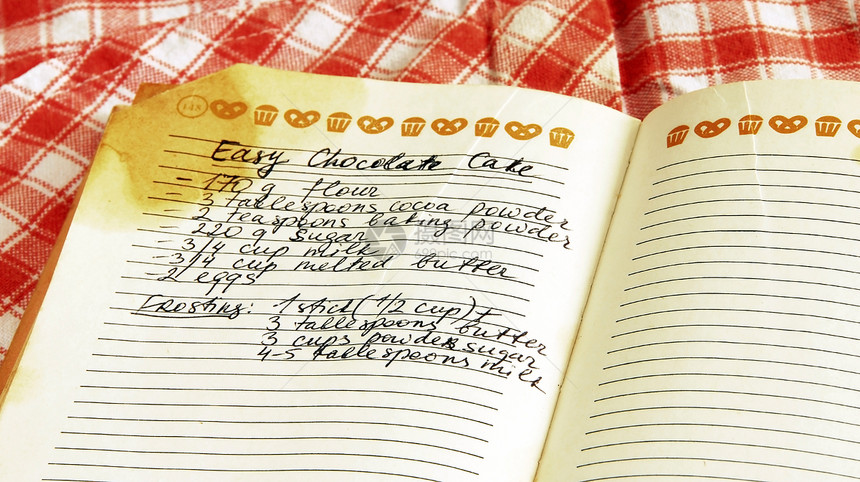 148
Easy Chocolate Cake
- 170 g flour
- 3 tablespoons cocoa powder
- 2 teaspoons baking powder
- 220 g sugar
- 3/4 cup milk
- 3/4 cup melted butter
- 2 eggs
Frosting: 1 stick (1/2 cup) +
3 tablespoons butter
3 cups powder sugar
4-5 tablespoons milk